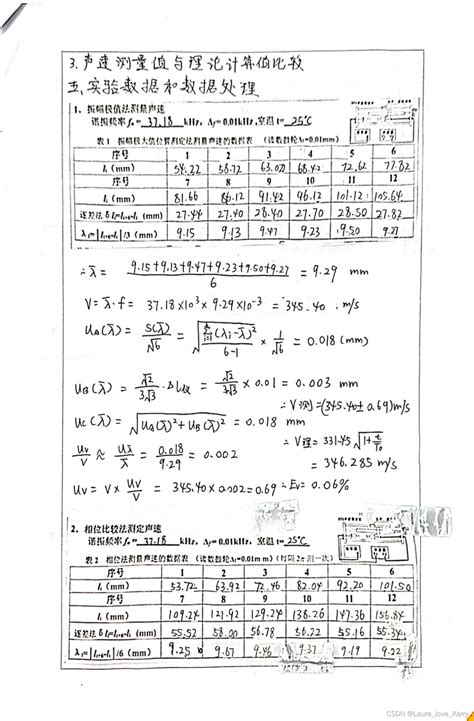 3. 声速测量值与理论计算值比较
五、实验数据和数据处理
1、振幅极值法测量声速
谐振频率f₀= 37.18 kHz, Δf= 0.01kHz, 室温 t= 25℃
表1 振幅极大值位置测定法测量声速的数据表 (读数鼓轮Δ=0.01mm)
序号 1 2 3 4 5 6
lᵢ (mm) 54.22 58.72 63.02 68.42 72.62 77.82
序号 7 8 9 10 11 12
lᵢ (mm) 81.66 86.12 91.42 96.12 101.12 105.64
逐差法 δlᵢ=lᵢ₊₆-lᵢ (mm) 27.44 27.40 28.40 27.70 28.50 27.82
λᵢ=|lᵢ₊₆-lᵢ|/3 (mm) 9.15 9.13 9.47 9.23 9.50 9.27
∴ λ̄ = (9.15+9.13+9.47+9.23+9.50+9.27)/6 = 9.29 mm
V= λ̄·f = 37.18×10³×9.29×10⁻³ = 345.40 m/s
u_A(λ̄) = S(λ̄)/√6 = √(Σ(λᵢ-λ̄)²/(6-1)) × 1/√6 = 0.018 (mm)
u_B(λ̄) = √2/(3√3)·Δ仪 = √2/(3√3) × 0.01 = 0.003 mm
∴ V测=(345.40±0.69)m/s
u_C(λ̄) = √(u_A(λ̄)²+u_B(λ̄)²) = 0.018 mm
∴ V理= 331.45√(1+t/T₀)
u_V/V ≈ u_λ̄/λ̄ = 0.018/9.29 = 0.002
= 346.285 m/s
u_V = V× u_V/V = 345.40×0.002=0.69 ∴ E_V= 0.06%
2、相位比较法测定声速
谐振频率f₀= 37.18 kHz, Δf=0.01kHz, 室温 t= 25℃
表2 相位法测量声速的数据表 (读数鼓轮Δ=0.01mm) (时隔2π测一次)
序号 1 2 3 4 5 6
lᵢ (mm) 53.72 63.92 72.46 82.04 92.20 101.50
序号 7 8 9 10 11 12
lᵢ (mm) 109.24 121.92 129.24 138.26 147.36 156.84
逐差法 δlᵢ=lᵢ₊₆-lᵢ (mm) 55.52 58.00 56.78 56.22 55.16 55.34
λᵢ=|lᵢ₊₆-lᵢ|/6 (mm) 9.25 9.67 9.46 9.37 9.19 9.22
CSDN @Laura_love_Karry